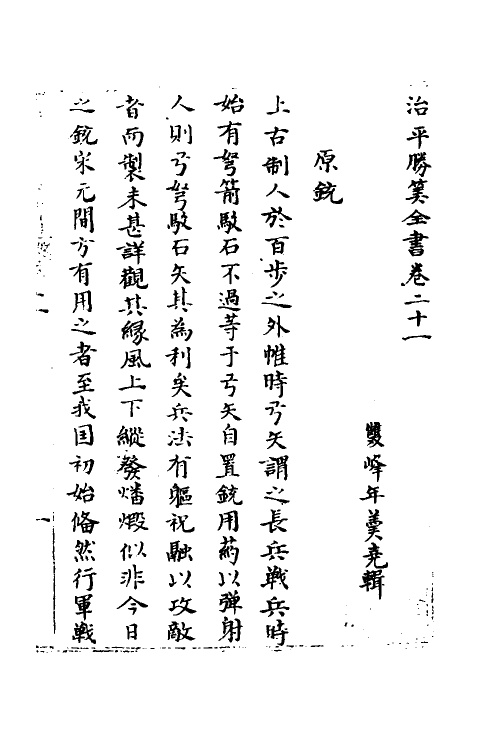 治平勝筭全書卷二十一
雙峰年羹堯輯
原銃
上古制人於百步之外惟時弓矢謂之長兵戦兵時
始有弩箭駁石不過等于弓矢自置銃用药以弹射
人則弓弩駁石矢其為利矣兵法有驅祝融以攻敵
者而製未甚詳觀其縁風上下縱發燔煆似非今日
之銃宋元間方有用之者至我国初始偹然行軍戦
一